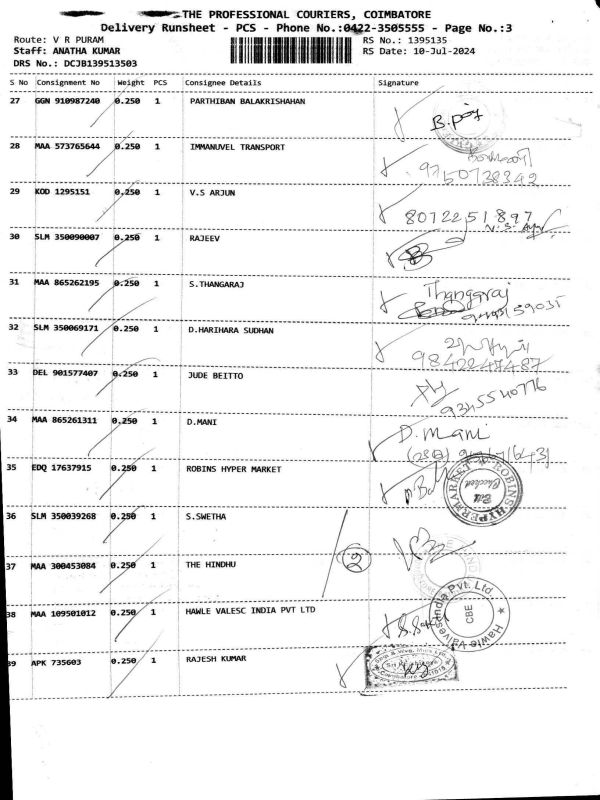 THE PROFESSIONAL COURIERS, COIMBATORE
Delivery Runsheet - PCS - Phone No.:0422-3505555 - Page No.:3
Route: V R PURAM RS No.: 1395135
Staff: ANATHA KUMAR RS Date: 10-Jul-2024
DRS No.: DCJB139513503
S No Consignment No Weight PCS Consignee Details Signature
27 GGN 910987240 0.250 1 PARTHIBAN BALAKRISHAHAN
28 MAA 573765644 0.250 1 IMMANUVEL TRANSPORT
9750728342
29 KOD 1295151 0.250 1 V.S ARJUN
8072251897
30 SLM 350090007 0.250 1 RAJEEV
31 MAA 865262195 0.250 1 S.THANGARAJ Thangaraj
32 SLM 350069171 0.250 1 D.HARIHARA SUDHAN
9842247487
33 DEL 901577407 0.250 1 JUDE BEITTO
9345540776
34 MAA 865261311 0.250 1 D.MANI D. Mani
35 EDQ 17637915 0.250 1 ROBINS HYPER MARKET
ROBINS HYPERMARKET
Bill
Checked
36 SLM 350039268 0.250 1 S.SWETHA
29
37 MAA 300453084 0.250 1 THE HINDHU
38 MAA 109501012 0.250 1 HAWLE VALESC INDIA PVT LTD
Hawle Valves India Pvt. Ltd
CBE
39 APK 735603 0.250 1 RAJESH KUMAR